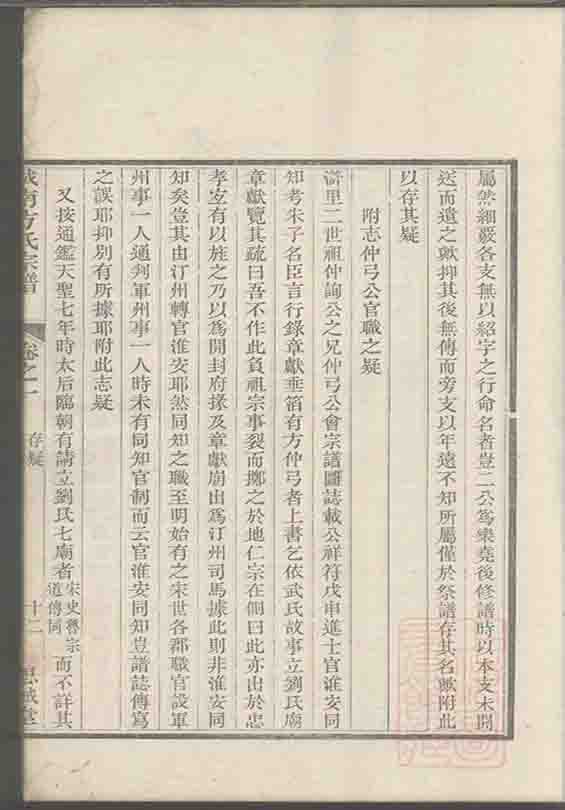 屬然細覈各支無以紹字之行命名者豈二公爲樂堯後修譜時以本支未開
送而遺之歟抑其後無傳而旁支以年遠不知所屬僅於祭譜存其名歟附此
以存其疑
附志仲弓公官職之疑
滸里二世祖仲詢公之兄仲弓公會宗譜圖誌載公祥符戊申進士官淮安同
知考朱子名臣言行錄章獻垂箔有方仲弓者上書乞依武氏故事立劉氏廟
章獻覽其疏曰吾不作此負祖宗事裂而擲之於地仁宗在側曰此亦出於忠
孝宜有以旌之乃以爲開封府掾及章獻崩出爲汀州司馬據此則非淮安同
知矣豈其由汀州轉官淮安耶然同知之職至明始有之宋世各郡職官設軍
州事一人通判軍州事一人時未有同知官制而云官淮安同知豈譜誌傳寫
之誤耶抑別有所據耶附此志疑
又按通鑑天聖七年時太后臨朝有請立劉氏七廟者宋史魯宗道傳同而不詳其
城南方氏宗譜 卷之一 存疑 十二 思誠堂